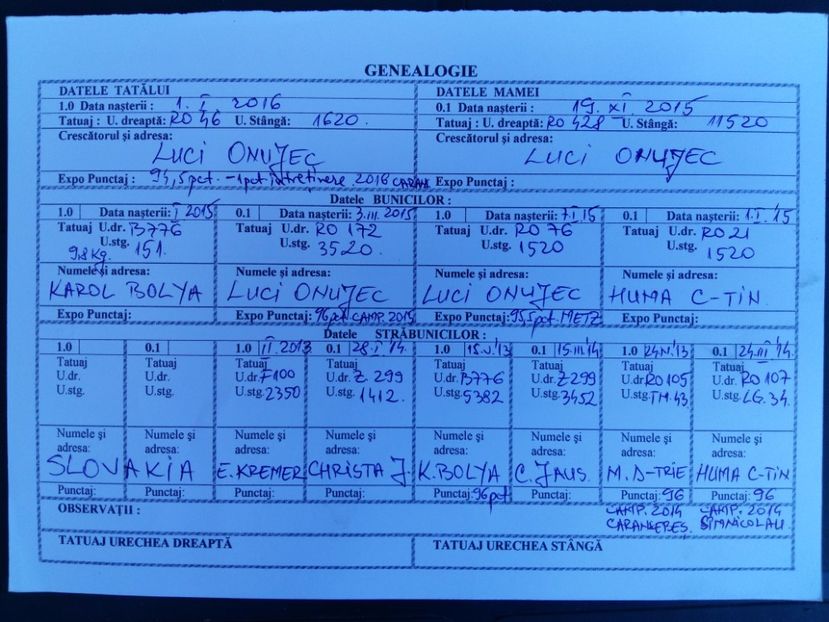 GENEALOGIE
DATELE TATĂLUI
1.0 Data nașterii : 1. I. 2016
Tatuaj : U. dreaptă: RO 46 U. Stângă: 1620.
Crescătorul și adresa:
LUCI ONUJEC
Expo Punctaj : 94,5pct. -1pct întreținere 2016
DATELE MAMEI
0.1 Data nașterii : 19. XI. 2015
Tatuaj : U. dreaptă: RO 428 U. Stângă: 11520
Crescătorul și adresa:
LUCI ONUJEC
Expo Punctaj :
Datele BUNICILOR :
1.0 Data nașterii: I 2015
Tatuaj U.dr. B776
U.stg. 151.
9,8 Kg.
Numele și adresa:
KAROL BOLYA
Expo Punctaj:
0.1 Data nașterii: 3. III. 2015
Tatuaj U.dr. RO 172
U.stg. 3520.
Numele și adresa:
LUCI ONUJEC
Expo Punctaj: 96pct CAMP. 2015
1.0 Data nașterii: 7.I 15
Tatuaj U.dr. RO 76
U.stg. 1520
Numele și adresa:
LUCI ONUJEC
Expo Punctaj: 95,5pct. METZ
0.1 Data nașterii: 1. I. 15
Tatuaj U.dr. RO 21
U.stg. 1520
Numele și adresa:
HUMA C-TIN
Expo Punctaj:
Datele STRĂBUNICILOR :
1.0
Tatuaj
U.dr.
U.stg.
0.1
Tatuaj
U.dr.
U.stg.
Numele și adresa:
Numele și adresa:
SLOVAKIA
Punctaj:
Punctaj:
1.0 II. 2013
Tatuaj
U.dr. F100
U.stg. 2350
Numele și
adresa:
E. KREMER
Punctaj:
0.1 28. I. '14.
Tatuaj
U.dr. Z. 299
U.stg. 1412.
Numele și
adresa:
CHRISTA J.
Punctaj:
1.0 15. V. '13
Tatuaj
U.dr. B776
U.stg. 5382
Numele și
adresa:
K. BOLYA
Punctaj: 96pct
0.1 15. III. '14
Tatuaj
U.dr. Z299
U.stg. 3452
Numele și
adresa:
C. JAUS.
Punctaj:
1.0 24. IV. '13
Tatuaj
U.dr. RO 105
U.stg. TM. 43
Numele și
adresa:
M. D-TRIE
Punctaj: 96
0.1 24. III '14.
Tatuaj
U.dr. RO 107
U.stg. LG. 34.
Numele și
adresa:
HUMA C-TIN
Punctaj: 96
OBSERVAȚII :
CAMP. 2014
CARANSEBEȘ.
CAMP. 2014
SÎMNICOLAU.
TATUAJ URECHEA DREAPTĂ
TATUAJ URECHEA STÂNGĂ